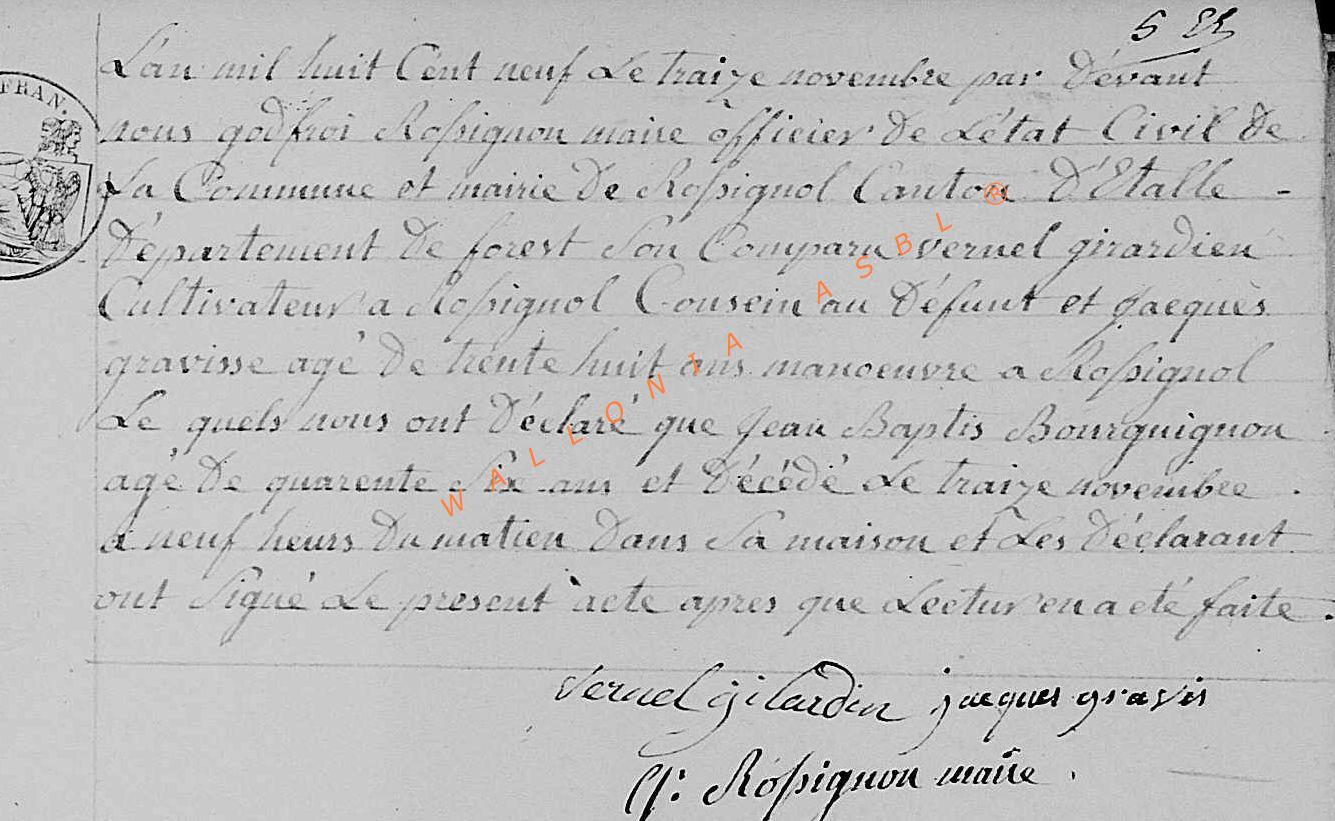 5 Et
L'an mil huit Cent neuf Le traize novembre par Dévant
nous godfroi Rossignon maire officier De L'état Civil De
La Commune et mairie De Rossignol Canton D'Etalle -
Département De forest Son Comparu vernel girardien
Cultivateur a Rossignol Cousein au Défunt et Jacques
gravisse agé De trente huit ans manoeuvre a Rossignol
Le quels nous ont Déclaré que Jean Baptis Bourguignon
agé De quarente Six ans et Décédé Le traize novembre .
a neuf heurs Du matien Dans Sa maison et Les Déclarant
ont Signé Le present acte apres que Lectur en a eté faite .
vernel gilardin jacques gravis
Rossignon maire .
FRAN.
WALLONIA ASBL ®